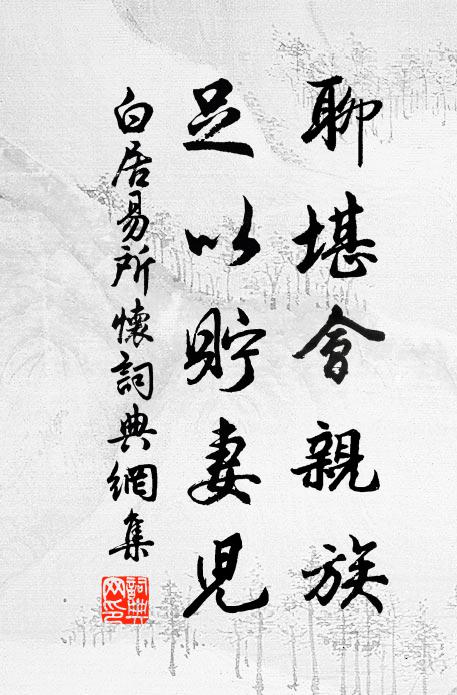 聊堪會親族
足以貯妻兒
白居易所懷詞典網集
詞典
网印